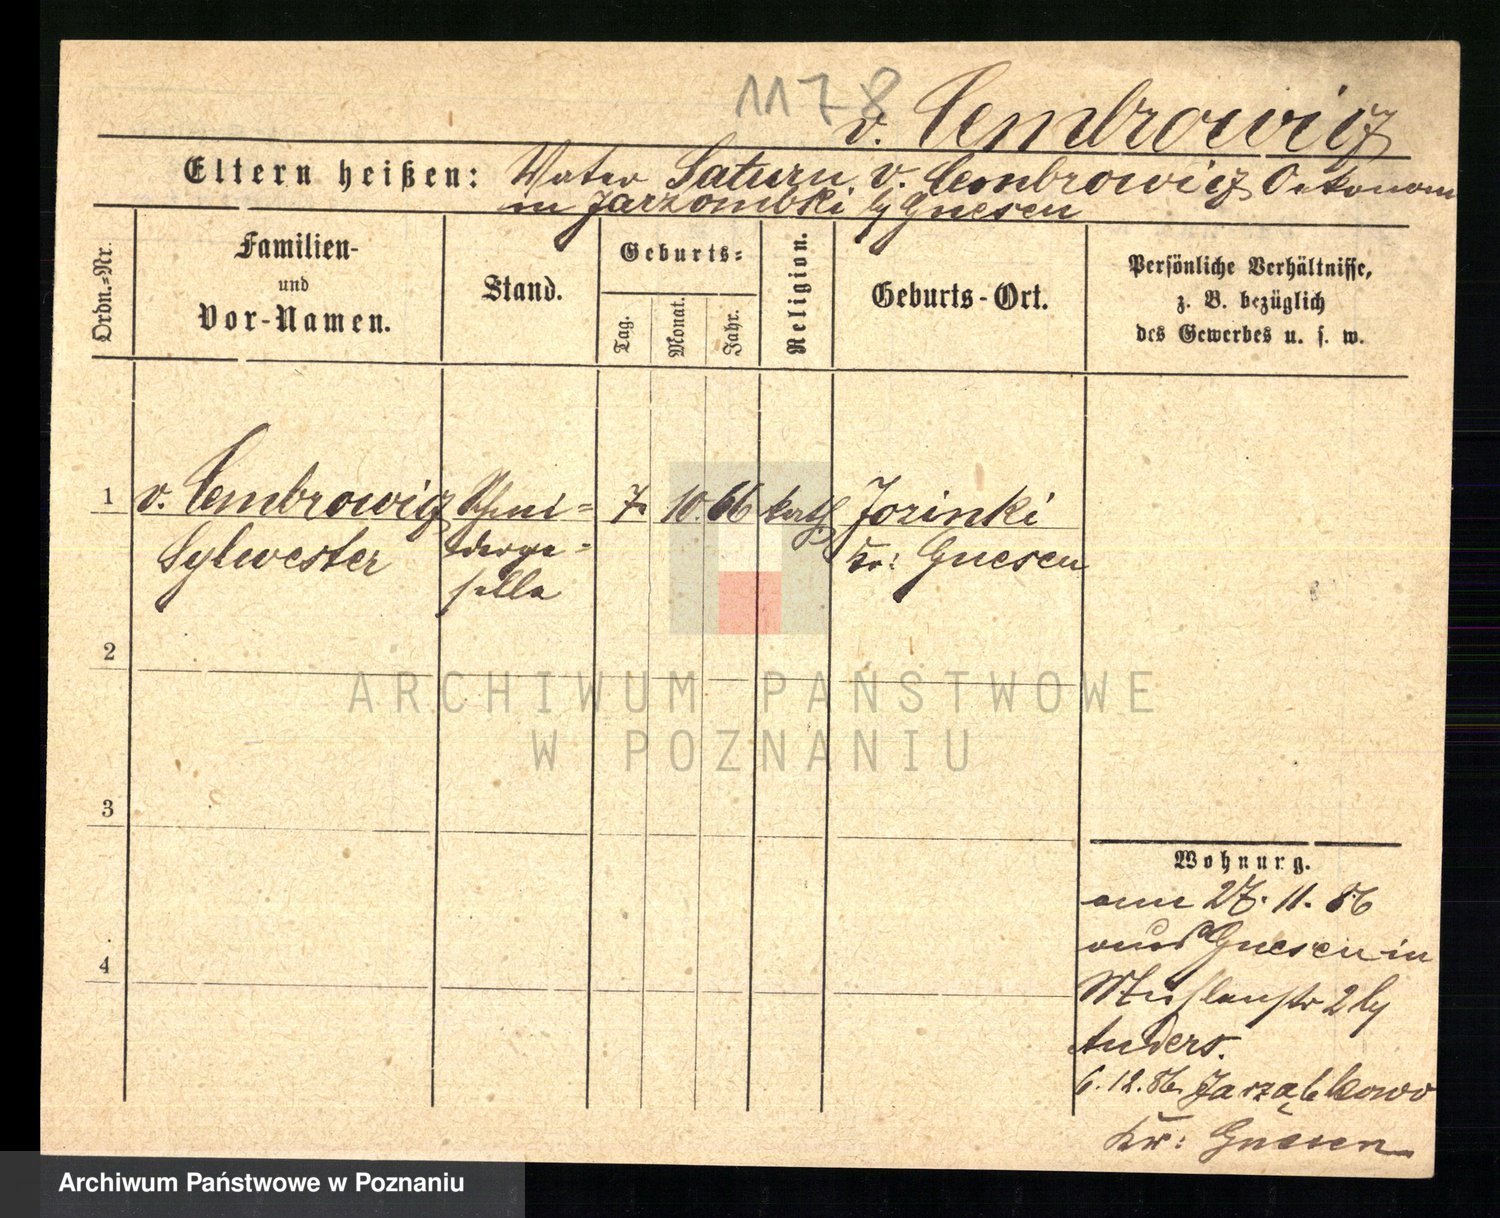 1178
v. Cembrowicz
Eltern heißen: Vater Saturn v. Cembrowicz Oekonom
in Jarzombki b/ Gnesen
Ordn.=Nr.
Familien-
und
Vor-Namen.
Stand.
Geburts=
Tag.
Monat.
Jahr.
Religion.
Geburts-Ort.
Persönliche Verhältnisse,
z. B. bezüglich
des Gewerbes u. s. w.
1 v. Cembrowicz Schnei= 7. 10. 66 kath Jorinki
Sylwester derge= Kr: Gnesen
selle
2
3
4
ARCHIWUM PAŃSTWOWE
W POZNANIU
Wohnung.
am 27. 11. 86
aus Gnesen in
Mühlenstr 2 b/
Anders.
6. 12. 86. Jarząbkowo
Kr: Gnesen
Archiwum Państwowe w Poznaniu